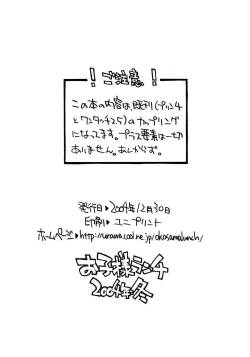 ！ご注意！
この本の内容は、既刊（プリン4
とワンタッチ25）のカップリング
になってます。プラス要素は一切
ありません。あしからず。
発行日▶2004年12月30日
印刷▶ユニプリント
ホームページ▶http://www.cool.ne.jp/okosamalunch/
お子様ランチ
2004年冬